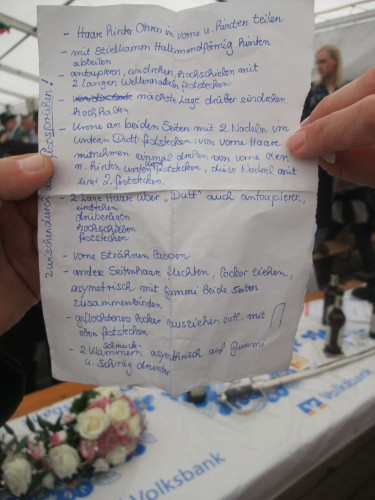 - Haare hinter Ohren in vorne u. hinten teilen
- mit Stielkamm Halbmondförmig hinten
abteilen
- antoupieren, eindrehen, hochschieben mit
2 langen Wellennadeln feststecken
- nächste Lage drüber eindrehen
hochhalten
- Krone an beiden Seiten mit 2 Nadeln im
untern Dutt feststecken von vorne Haare
mitnehmen einmal drehen von vorne oben
n. hinten unten feststecken, diese Nadel mit
einer 2. feststecken.
- 2. Lage Haare über "Dutt" auch antoupieren,
eindrehen
drüberlegen
hochschieben
feststecken
- vorne Strähnen lassen
- andere Seitenhaare flechten, locker ziehen,
asymetrisch mit Gummi beide Seiten
zusammenbinden
- geflochtenes locker ausziehen evtl. mit
oben feststecken
- 2 Schmuck-
Klammern asymtrisch auf Gummi
u. schräg drunter
zwischendurch festsprühen!
Volksbank
Volksbank